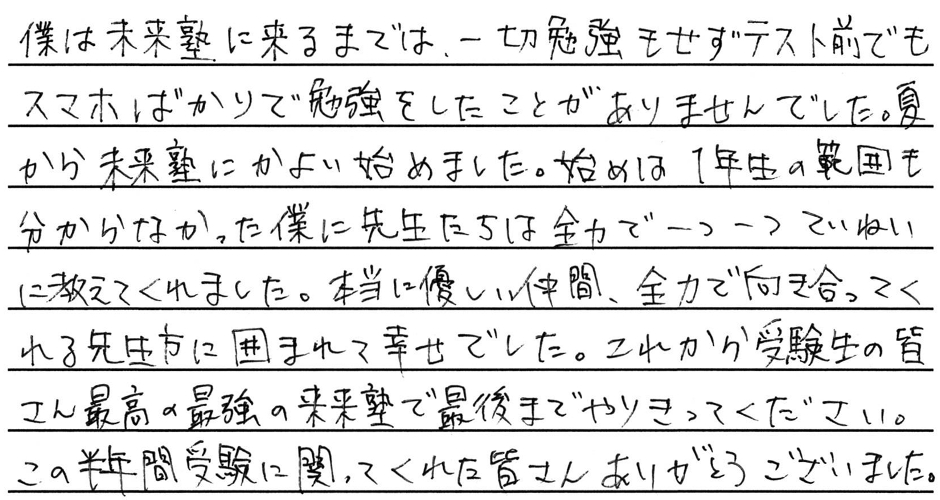 僕は未来塾に来るまでは、一切勉強もせずテスト前でも
スマホばかりで勉強をしたことがありませんでした。夏
から未来塾にかよい始めました。始めは1年生の範囲も
分からなかった僕に先生たちは全力で一つ一つていねい
に教えてくれました。本当に優しい仲間、全力で向き合ってく
れる先生方に囲まれて幸せでした。これから受験生の皆
さん最高の最強の未来塾で最後までやりきってください。
この半年間受験に関ってくれた皆さんありがとうございました。